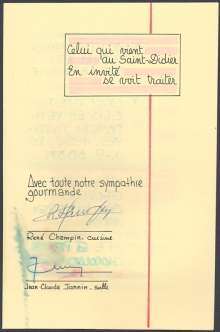 Celui qui vient
au Saint-Didier
En invité
se voit traiter
Avec toute notre sympathie
gourmande
René Champin - cuisine
Jean-Claude Jammin - salle